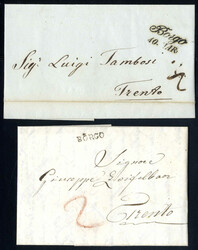 Borgo
Sigr Luigi Tambosi
Trento
BORGO
Signore
Giuseppe
Trento